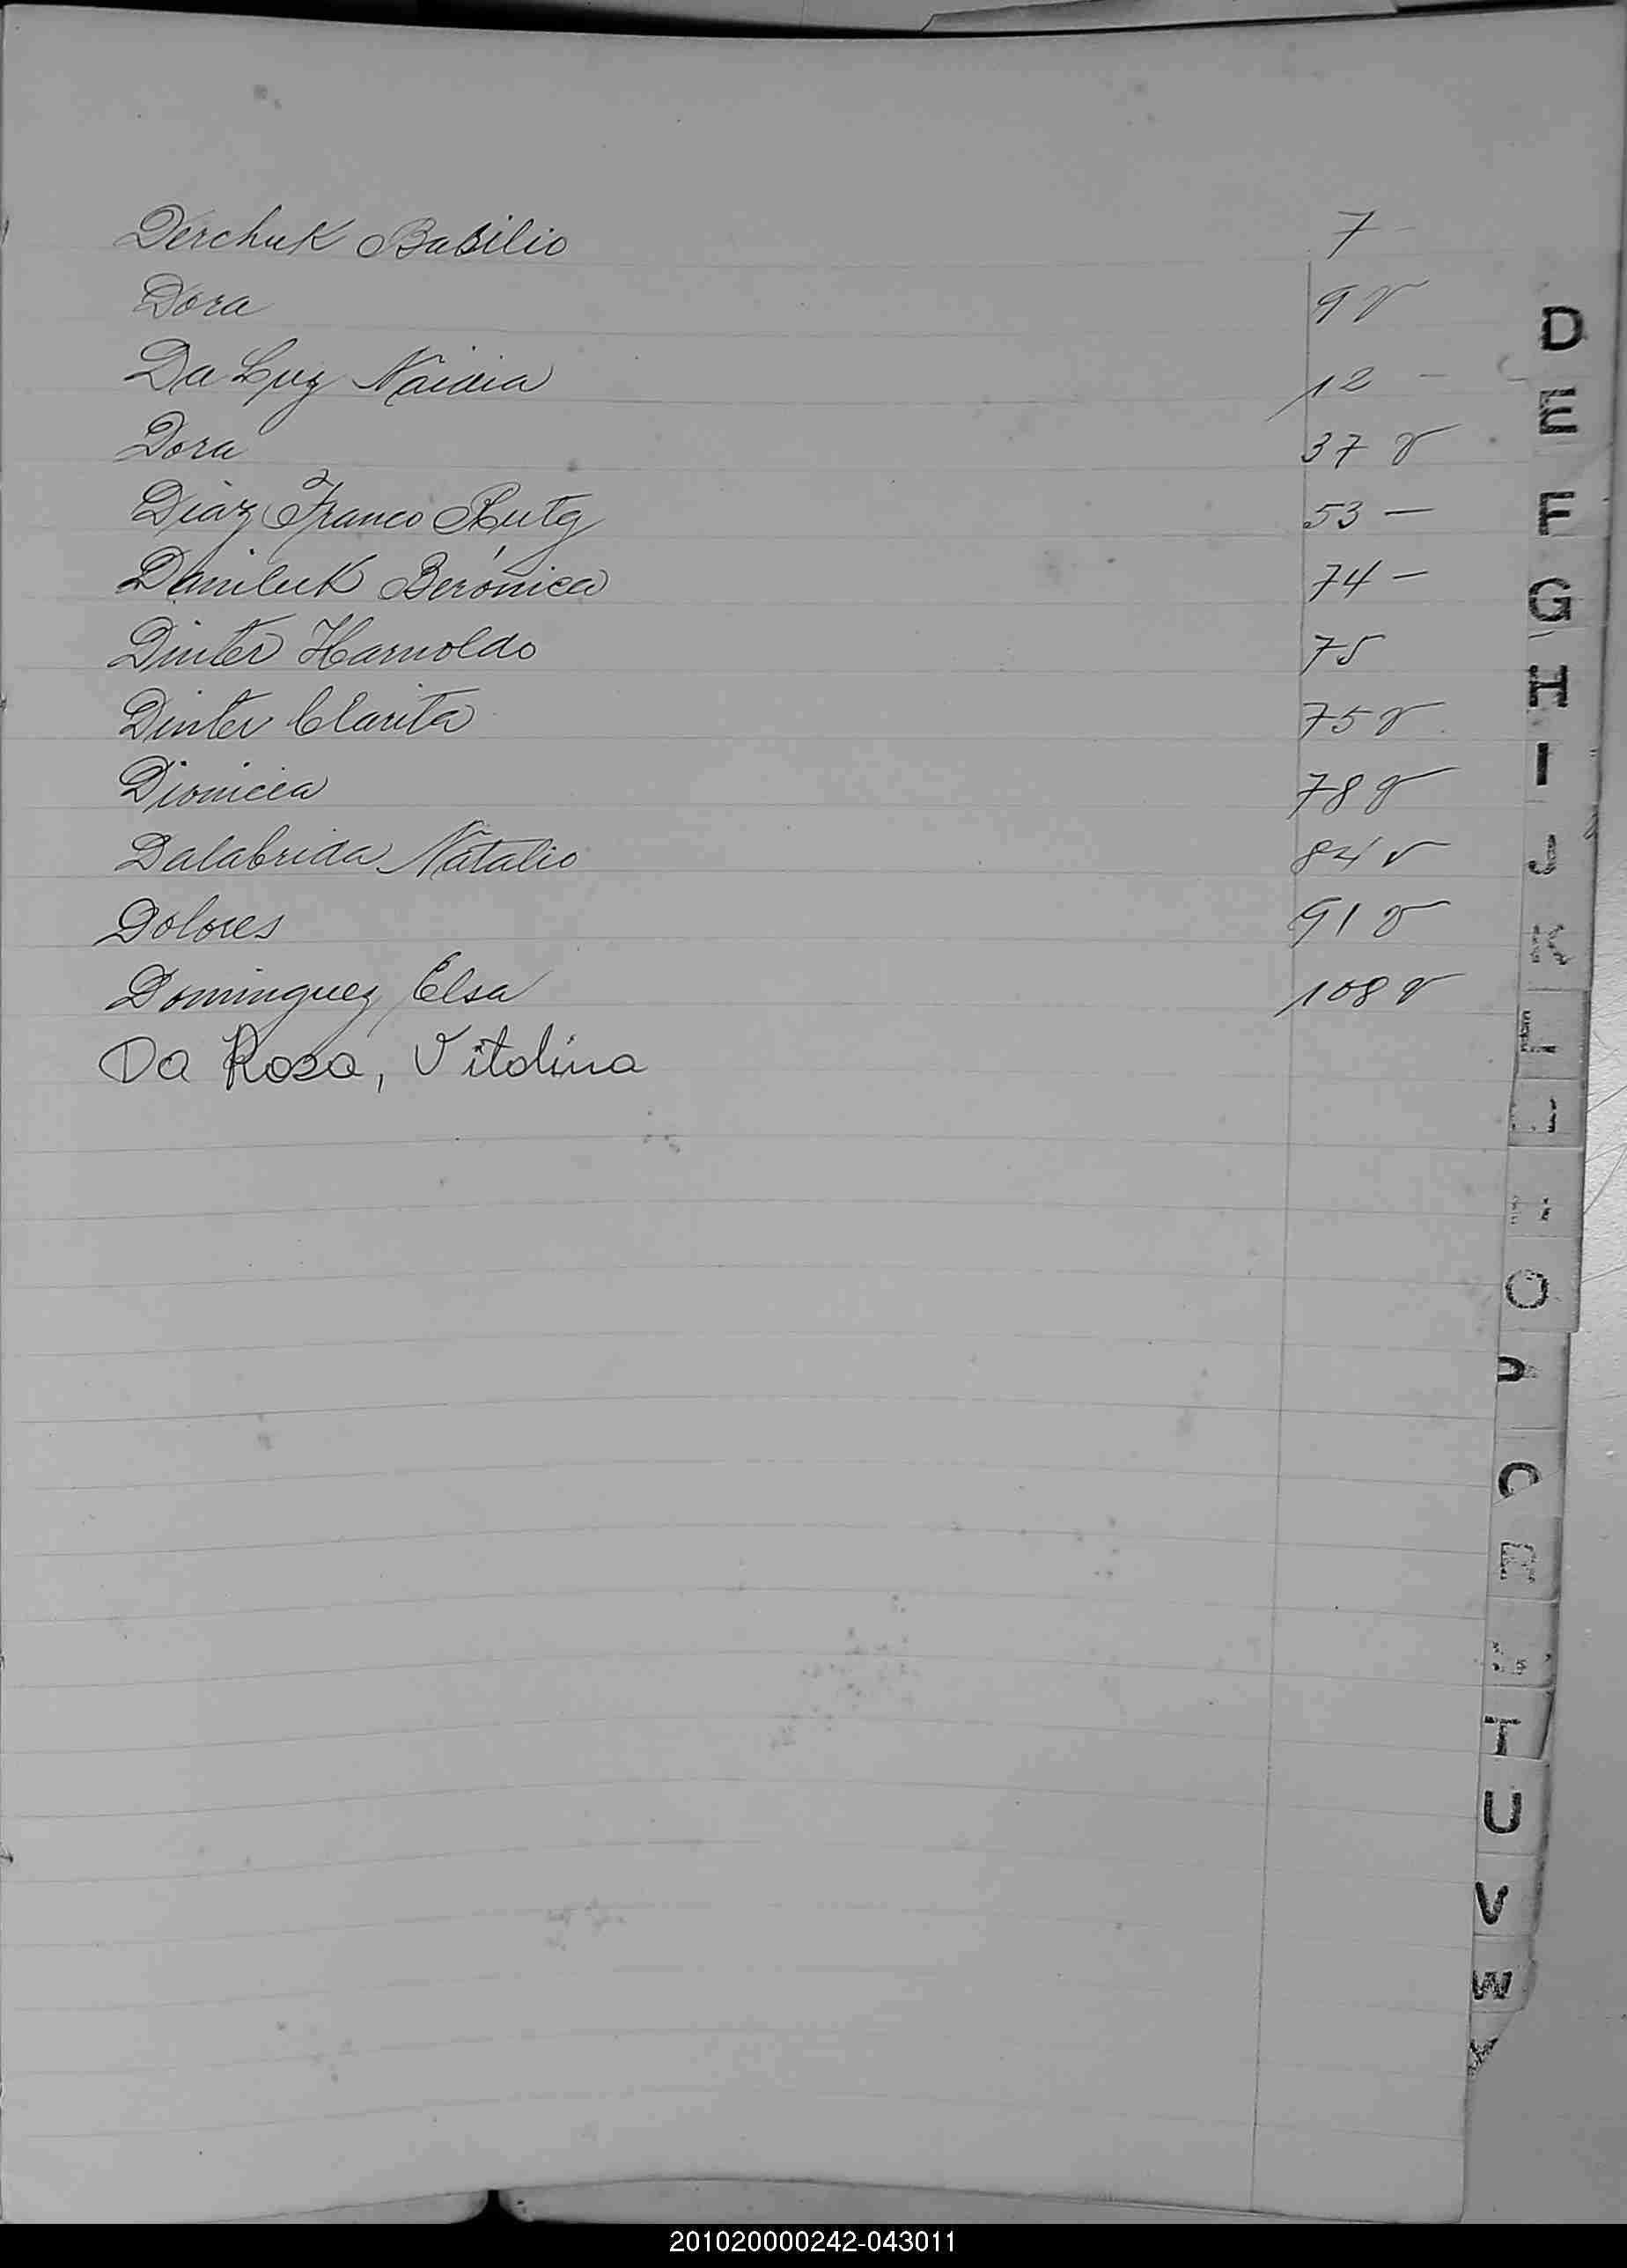 Derchuk Basilio 7 -
Dora 9 v
Da Luz Naidia 12 -
Dora 37 v
Diaz Franco Ruty 53 -
Daniluk Berónica 74 -
Dinter Harnoldo 75
Dinter Clarita 75 v
Dionicia 78 v
Dalabrida Natalio 84 v
Dolores 91 v
Dominguez Elsa 108 v
Da Rosa, Vitolina
D
E
F
G
H
I
J
K
L
O
P
T
U
V
W
201020000242-043011